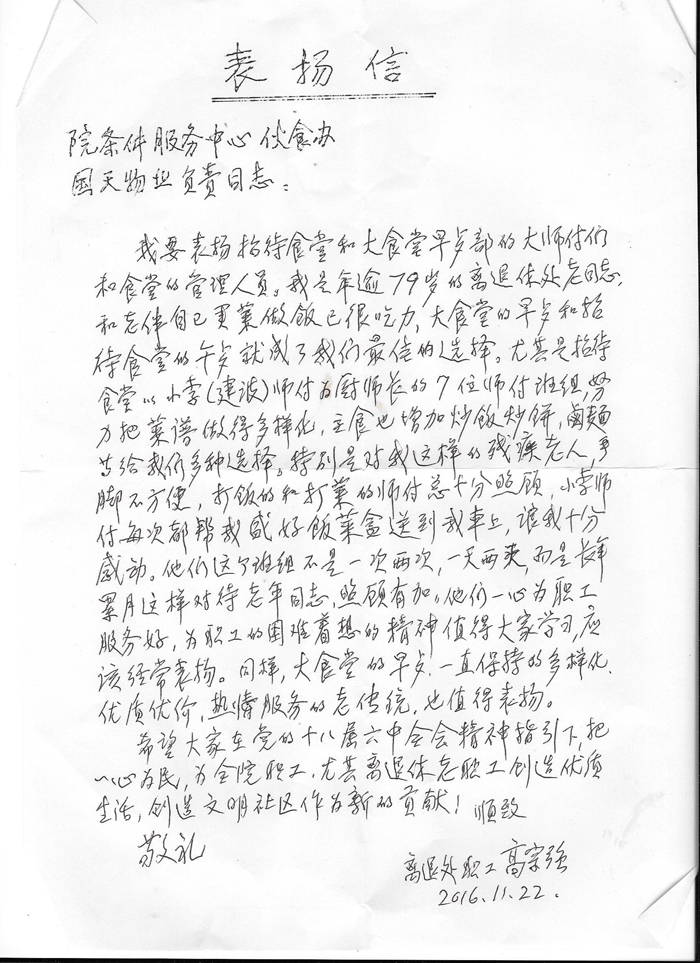 表扬信
院条件服务中心伙食办
国天物业负责同志：
我要表扬招待食堂和大食堂早点部的大师付们
和食堂的管理人员。我是年逾79岁的离退休处老同志,
和老伴自己买菜做饭已很吃力,大食堂的早点和招
待食堂的午点就成了我们最佳的选择。尤其是招待
食堂以小李(建波)师付为厨师长的7位师付班组,努
力把菜谱做得多样化,主食也增加炒饭炒饼,鹵麵
等给我们多种选择。特别是对我这样的残疾老人,手
脚不方便,打饭的和打菜的师付总十分照顾,小李师
付每次都帮我盛好飯菜盒送到我車上,讓我十分
感动。他们这个班组不是一次两次,一天两天,而是长年
累月这样对待老年同志,照顾有加。他们一心为职工
服务好,为职工的困难着想的精神值得大家学习,应
该经常表扬。同样,大食堂的早点一直保持的多样化、
优质优价,热情服务的老传统,也值得表扬。
希望大家在党的十八届六中全会精神指引下,把
一心为民,为全院职工,尤其离退休老职工创造优质
生活,创造文明社区作为新的贡献！顺致
敬礼
离退处职工高宗强
2016.11.22.